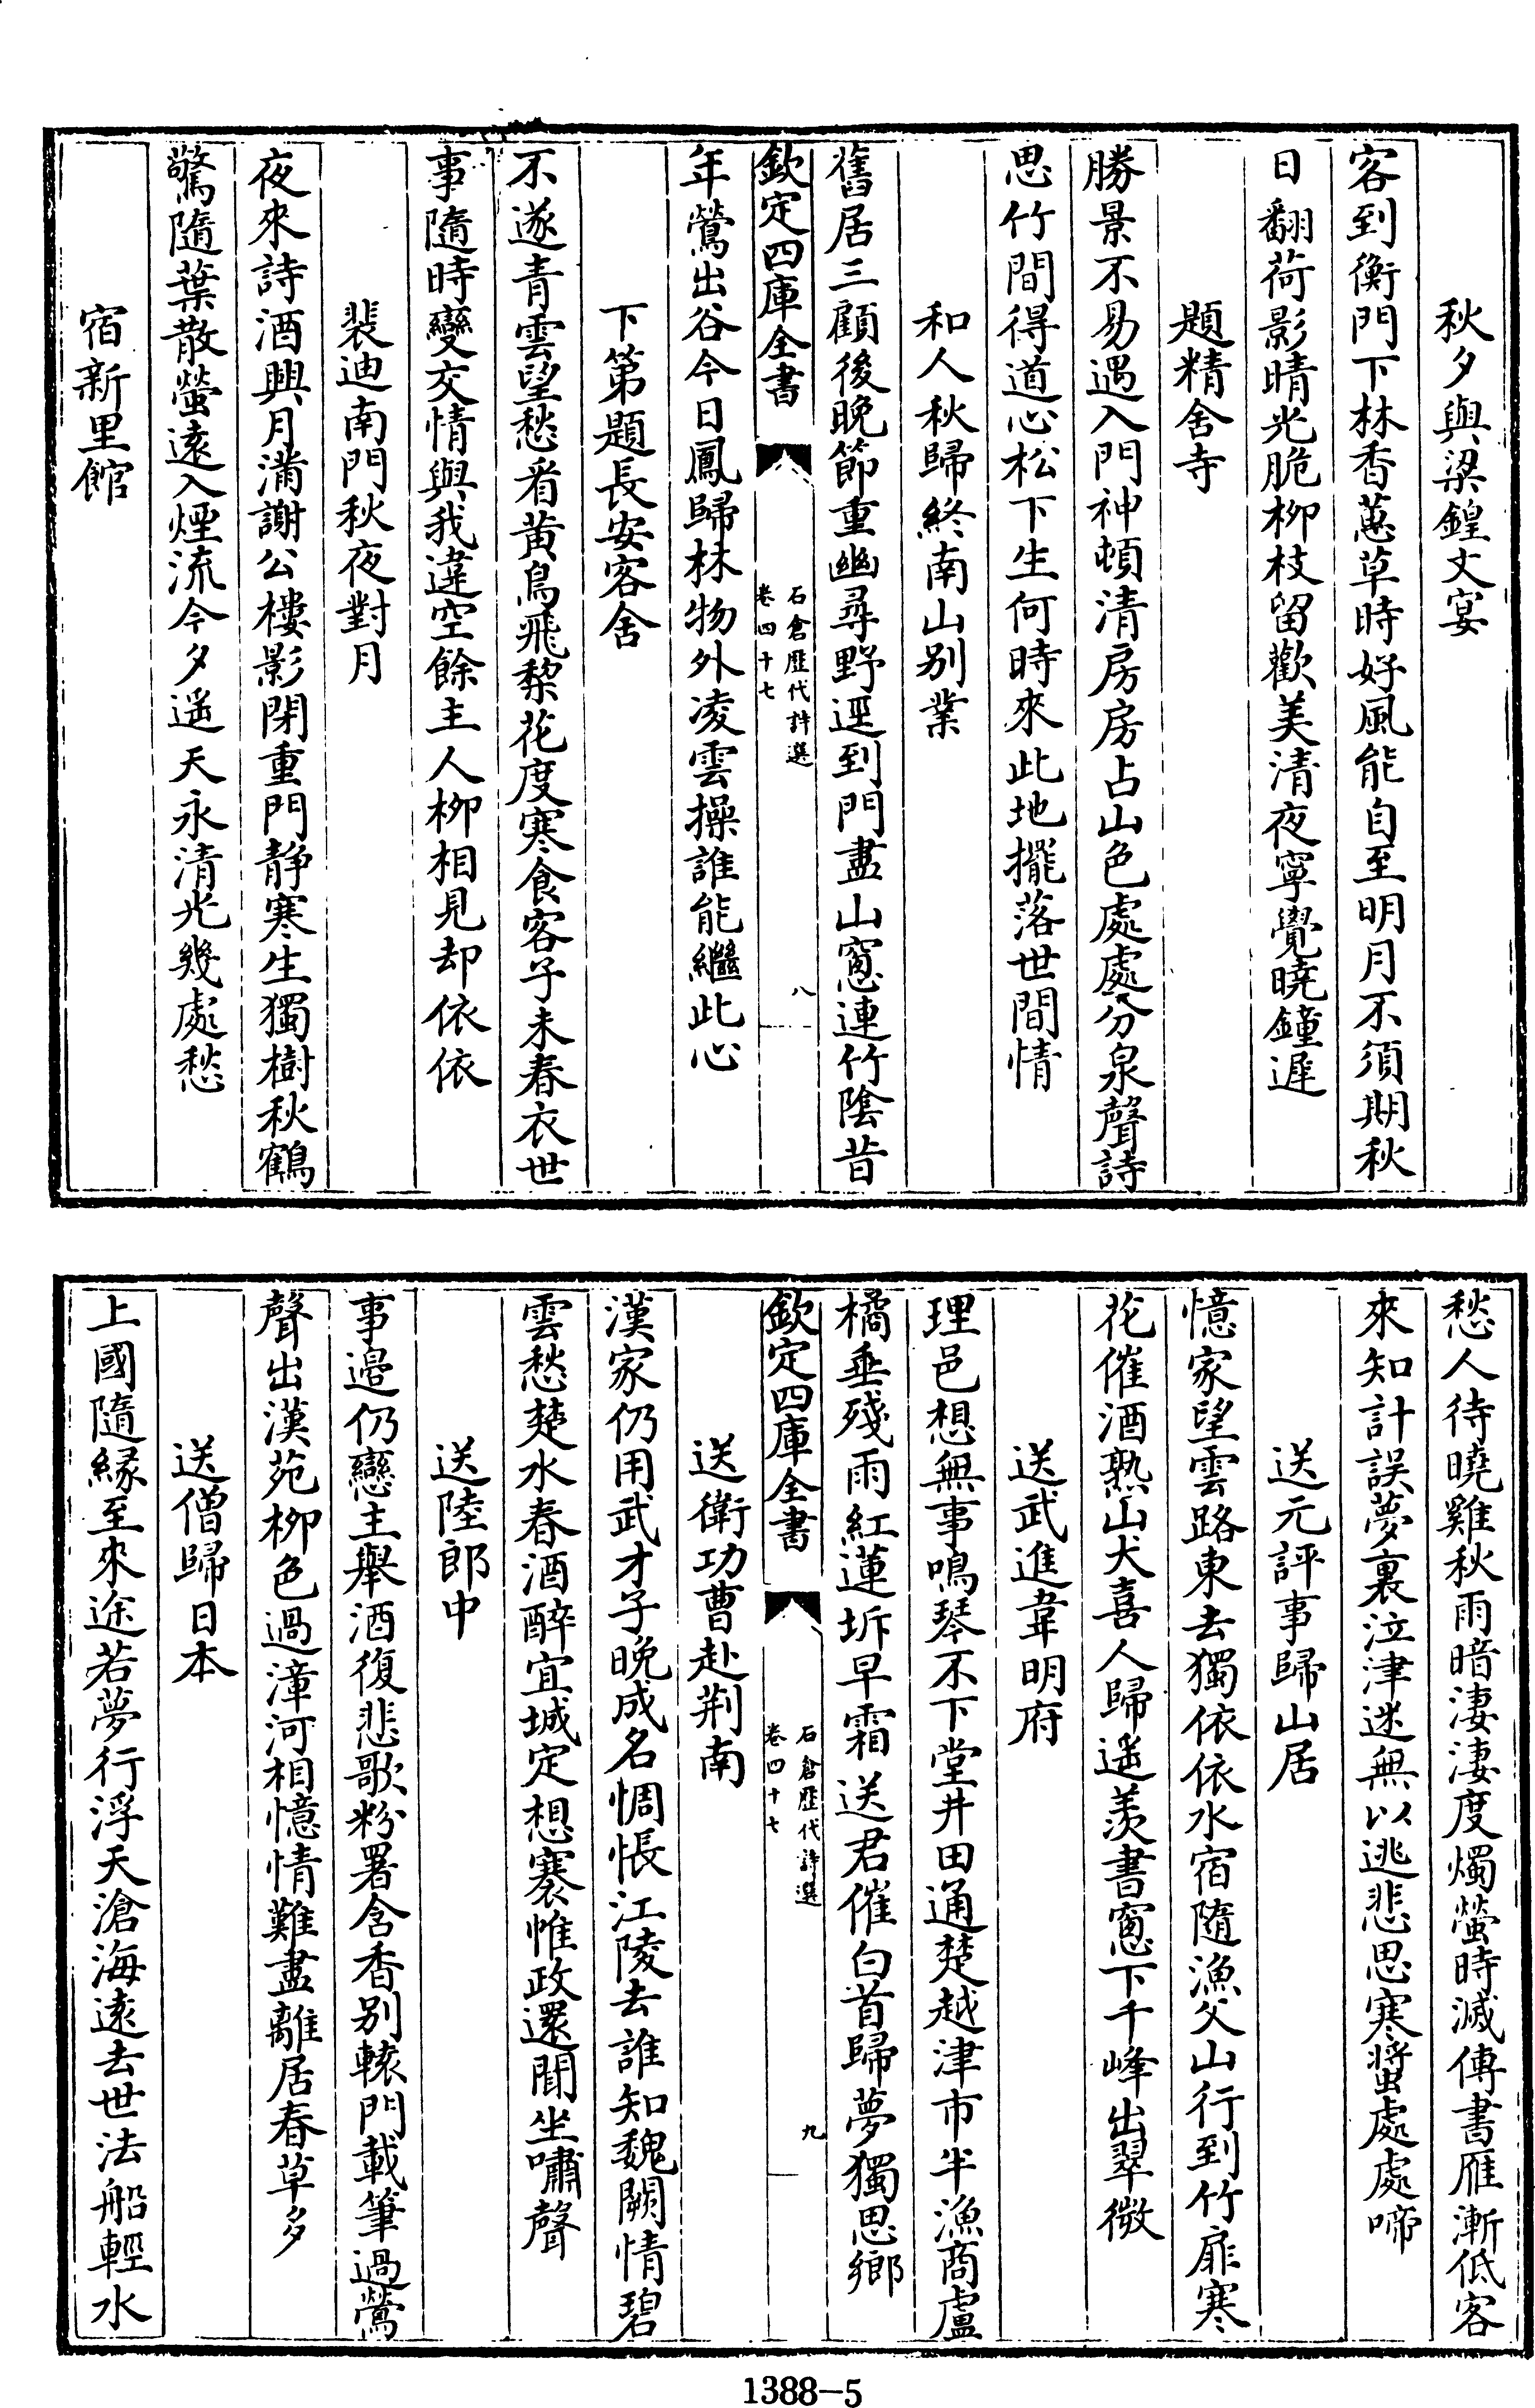 秋夕與梁鍠文宴
客到衡門下林香蕙草時好風能自至明月不須期秋
日翻荷影晴光脆柳枝留歡美清夜寧覺曉鐘遲
題精舍寺
勝景不易遇入門神頓清房房占山色處處分泉聲詩
思竹間得道心松下生何時來此地擺落世間情
和人秋歸終南山别業
舊居三顧後晚節重幽尋野逕到門盡山窻連竹陰昔
欽定四庫全書
石倉歷代詩選
卷四十七
八
年鶯出谷今日鳳歸林物外凌雲操誰能繼此心
下第題長安客舍
不遂青雲望愁看黄鳥飛棃花度寒食客子未春衣世
事隨時變交情與我違空餘主人柳相見却依依
裴迪南門秋夜對月
夜來詩酒興月滿謝公樓影閉重門静寒生獨樹秋鶴
驚隨葉散螢遠入煙流今夕遥天永清光幾處愁
宿新里館
愁人待曉雞秋雨暗淒淒度燭螢時滅傳書雁漸低客
來知計誤夢裏泣津迷無以逃悲思寒螿處處啼
送元評事歸山居
憶家望雲路東去獨依依水宿隨漁父山行到竹扉寒
花催酒熟山犬喜人歸遥羨書窻下千峰出翠微
送武進韋明府
理邑想無事鳴琴不下堂井田通楚越津市半漁商盧
橘垂殘雨紅蓮坼早霜送君催白首歸夢獨思鄉
欽定四庫全書
石倉歷代詩選
卷四十七
九
送衛功曹赴荆南
漢家仍用武才子晚成名惆悵江陵去誰知魏闕情碧
雲愁楚水春酒醉宜城定想褰惟政還聞坐嘯聲
送陸郎中
事邉仍戀主舉酒復悲歌粉署含香别轅門載筆過鶯
聲出漢苑柳色過漳河相憶情難盡離居春草多
送僧歸日本
上國隨緣至來途若夢行浮天滄海遠去世法船輕水
1388—5